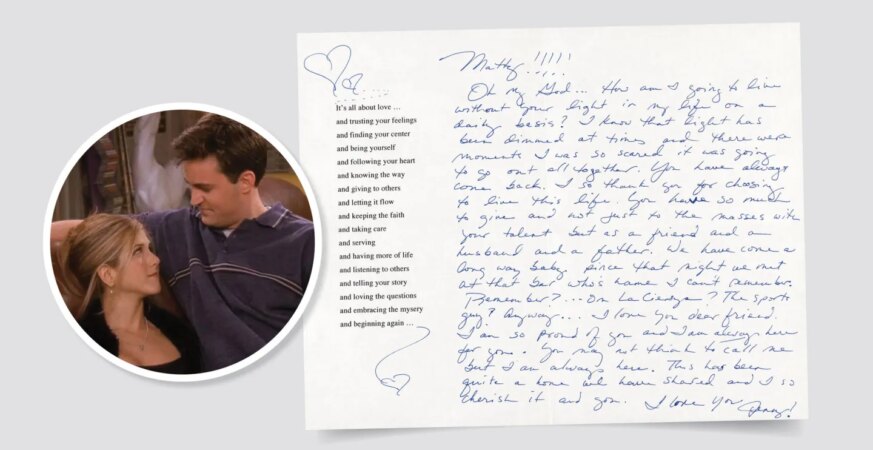 It's all about love ...
and trusting your feelings
and finding your center
and being yourself
and following your heart
and knowing the way
and giving to others
and letting it flow
and keeping the faith
and taking care
and serving
and having more of life
and listening to others
and telling your story
and loving the questions
and embracing the mysery
and beginning again ...
Matty!!!!!
Oh my God... How am I going to live
without your light in my life on a
daily basis? I know that light has
been dimmed at times and there were
moments I was so scared it was going
to go out all together. You have always
come back. I so thank you for choosing
to live this life. You have so much
to give and not just to the masses with
your talent but as a friend and a
husband and a father. We have come a
long way baby since that night we met
at that bar who's name I can't remember.
Remember?... On La Cienega? The sports
guy? Anyway... I love you dear friend.
I am so proud of you and I am always here
for you. You may not think to call me
but I am always here. This has been
quite a home we have shared and I so
cherish it and you. I love you